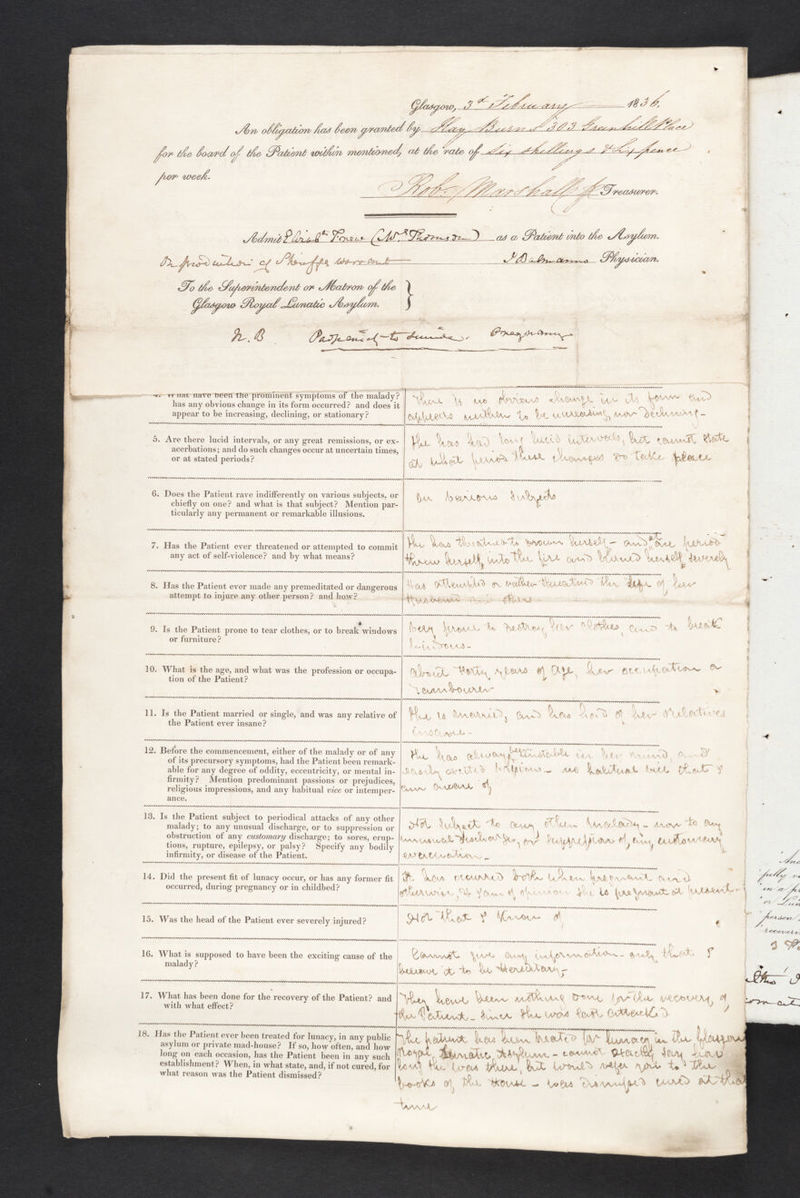 Glasgow, 3d February 1836.
An obligation has been granted by Hay Burns 303
for the board of the Patient within mentioned, at the rate of six shillings & sixpence
per week.
Robt Marshall Treasurer.
Admit (Mrs Thomson) as a Patient into the Asylum.
On production of Sheriffs warrant Physician.
To the Superintendent or Matron of the
Glasgow Royal Lunatic Asylum.
N.B to suicide. Pregnancy
4. What have been the prominent symptoms of the malady?
has any obvious change in its form occurred? and does it
appear to be increasing, declining, or stationary?
There is no obvious change in its form and
appears neither to be increasing, nor declining -
5. Are there lucid intervals, or any great remissions, or ex-
acerbations; and do such changes occur at uncertain times,
or at stated periods?
She has had long lucid intervals, but cannot state
at what period these changes do take place
6. Does the Patient rave indifferently on various subjects, or
chiefly on one? and what is that subject? Mention par-
ticularly any permanent or remarkable illusions.
On various subjects
7. Has the Patient ever threatened or attempted to commit
any act of self-violence? and by what means?
She has threatened to drown herself - and at one period
threw herself into the fire and burned herself severely
8. Has the Patient ever made any premeditated or dangerous
attempt to injure any other person? and how?
Has attempted or rather threatened the life of her
Husband and others
9. Is the Patient prone to tear clothes, or to break windows
or furniture?
Very prone to destroy her clothes, and to break
windows -
10. What is the age, and what was the profession or occupa-
tion of the Patient?
about Forty years of age, her occupation a
Tambourer
11. Is the Patient married or single, and was any relative of
the Patient ever insane?
She is married, and has had of her Relatives
insane -
12. Before the commencement, either of the malady or of any
of its precursory symptoms, had the Patient been remark-
able for any degree of oddity, eccentricity, or mental in-
firmity? Mention predominant passions or prejudices,
religious impressions, and any habitual vice or intemper-
ance.
She has always been unstable in her mind, and
easily excited - no habitual vice that I
am aware of
13. Is the Patient subject to periodical attacks of any other
malady; to any unusual discharge, or to suppression or
obstruction of any customary discharge; to sores, erup-
tions, rupture, epilepsy, or palsy? Specify any bodily
infirmity, or disease of the Patient.
Not subject to any other malady - nor to any
unusual discharge, or suppression of any customary
evacuation -
14. Did the present fit of lunacy occur, or has any former fit
occurred, during pregnancy or in childbed?
It has occurred both when pregnant and
otherwise, & I am of opinion she is pregnant at present -
15. Was the head of the Patient ever severely injured?
Not that I know of
16. What is supposed to have been the exciting cause of the
malady?
Cannot give any information - only that I
believe it to be Hereditary -
17. What has been done for the recovery of the Patient? and
with what effect?
They have been nothing done for the recovery of
the Patient - since she was last attacked
18. Has the Patient ever been treated for lunacy, in any public
asylum or private mad-house? If so, how often, and how
long on each occasion, has the Patient been in any such
establishment? When, in what state, and, if not cured, for
what reason was the Patient dismissed?
The patient has been treated for lunacy in the Glasgow
Royal Lunatic Asylum - cannot exactly say how
long she was there, but would refer you to the
books of the House - was dismissed cured at that
time